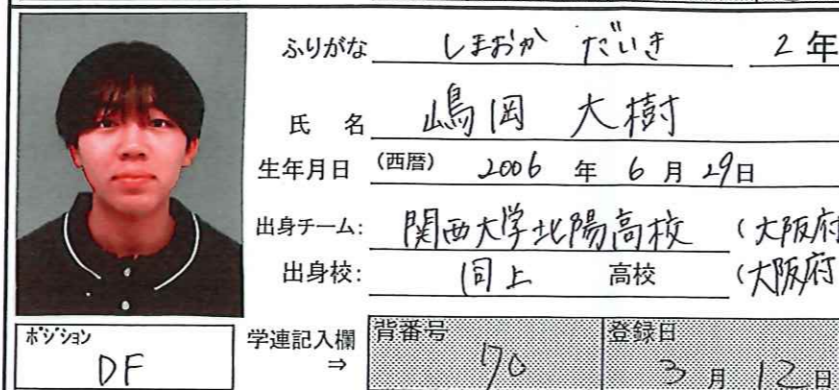 ふりがな しまおか だいき 2年
氏 名 嶋岡 大樹
生年月日 (西暦) 2006 年 6 月 29日
出身チーム: 関西大学北陽高校 (大阪府
出身校: 同上 高校 (大阪府
ポジション DF 学連記入欄 ⇒ 背番号 70 登録日 3 月 12 日